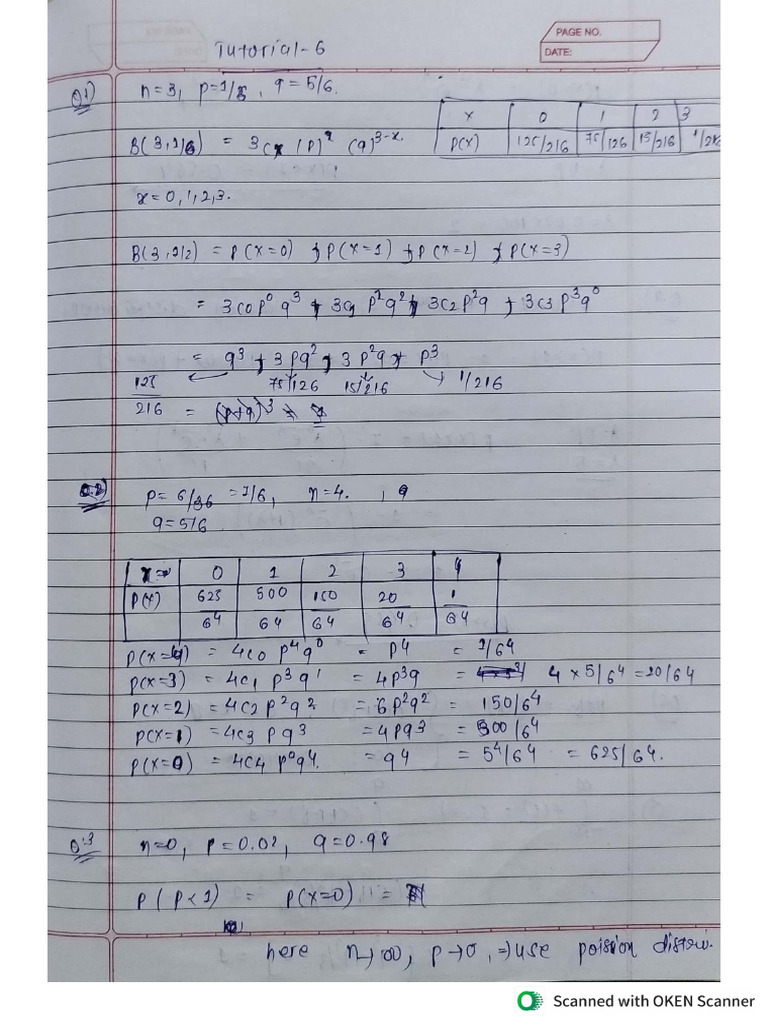 PAGE NO.
DATE:
Tutorial-6
Q1) n=3, p=1/6, q=5/6.
x 0 1 2 3
P(x) 125/216 75/126 15/216 1/216
B(3,1/6) = 3Cx (P)^x (q)^3-x.
x=0,1,2,3.
B(3,1/2) = P(x=0) + P(x=1) + P(x=2) + P(x=3)
= 3C0 p^0 q^3 + 3C1 p^1 q^2 + 3C2 p^2 q + 3C3 p^3 q^0
= q^3 + 3pq^2 + 3p^2q + p^3
125/216 75/126 15/216 1/216
= (p+q)^3 =
Q.2) P= 6/36 = 1/6, n=4. , q
q=5/6
x→ 0 1 2 3 4
P(x) 625/6^4 500/6^4 150/6^4 20/6^4 1/6^4
P(x=4) = 4C0 p^4 q^0 = p^4 = 1/6^4
P(x=3) = 4C1 p^3 q^1 = 4p^3q = 4 x 5/6^4 = 20/6^4
P(x=2) = 4C2 p^2 q^2 = 6p^2q^2 = 150/6^4
P(x=1) = 4C3 p q^3 = 4pq^3 = 500/6^4
P(x=0) = 4C4 p^0 q^4. = q^4 = 5^4/6^4 = 625/6^4.
Q.3 n=0, p=0.02, q=0.98
P(P<1) = P(x=0) =
here n→∞, p→0, ⇒ use poission distri.
Scanned with OKEN Scanner